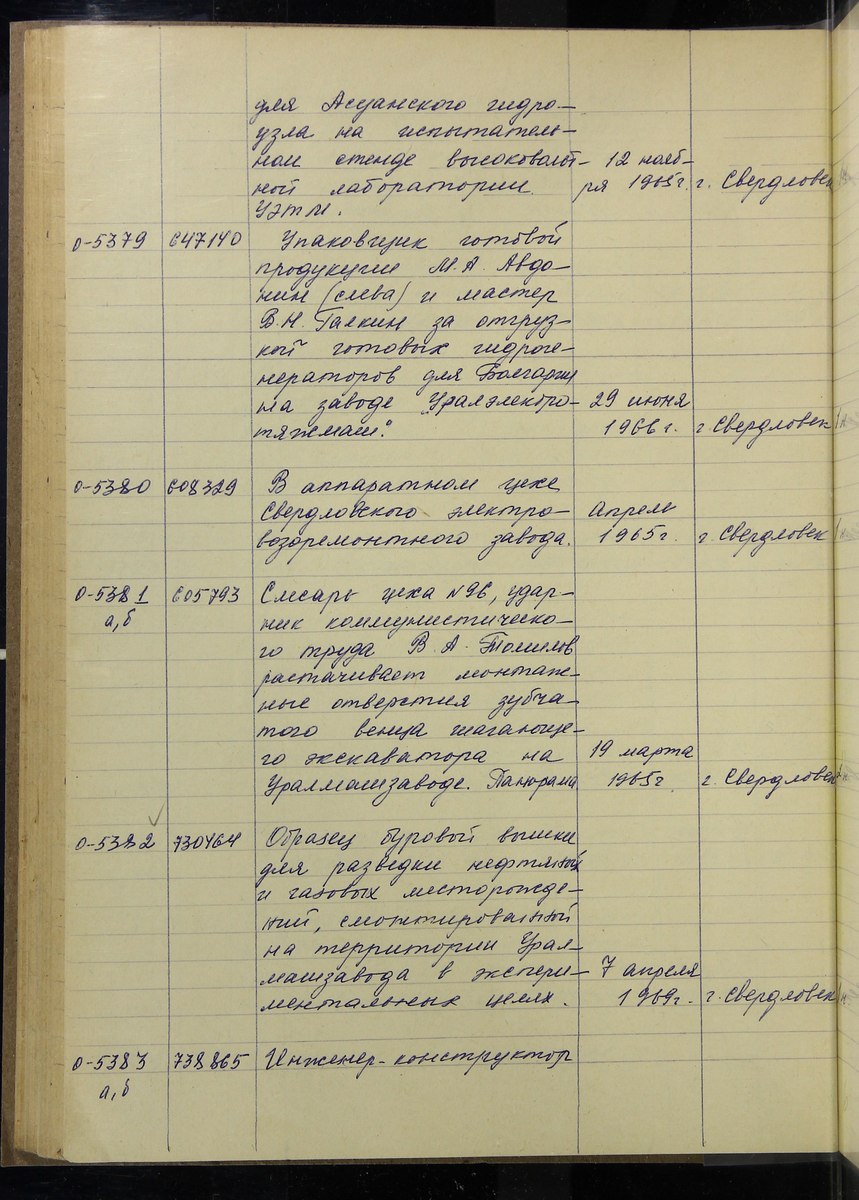 для Асуанского гидро-
узла на испытатель-
ном стенде высоковольт- 12 нояб-
ной лаборатории ря 1965г. г. Свердловск
УЭТМ.
0-5379 647140 Упаковщик готовой
продукции М.А. Авдо-
нин (слева) и мастер
В.Н. Галкин за отгруз-
кой готовых гидроге-
нераторов для Болгарии
на заводе "Уралэлектро- 29 июня
тяжмаш". 1966г. г. Свердловск
0-5380 608329 В аппаратном цехе
Свердловского электро- апрель
возоремонтного завода. 1965г. г. Свердловск
0-5381 605793 Слесарь цеха №96, удар-
а,б ник коммунистическо-
го труда В.А. Томилов
растачивает монтаж-
ные отверстия зубча-
того венца шагающе-
го экскаватора на 19 марта
Уралмашзаводе. Панорама 1965г. г. Свердловск
0-5382 730464 Образец буровой вышки
для разведки нефтяной
и газовых месторожде-
ний, смонтированной
на территории Урал-
машзавода в экспери- 7 апреля
ментальных целях. 1969г. г. Свердловск
0-5383 738865 Инженер-конструктор
а,б